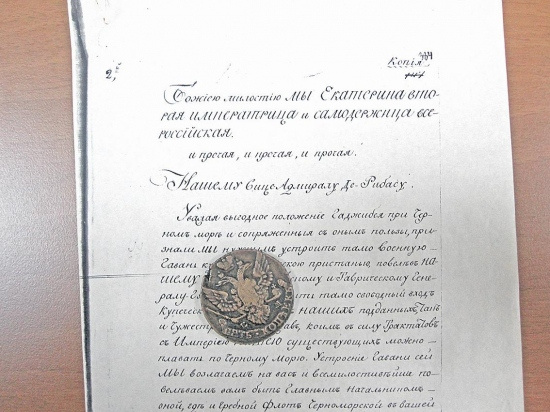 2,
Копія
Божією милостію МЫ Екатерина вто
рая императрица и самодержица все-
россійская.
и прочая, и прочая, и прочая.
Нашему Вице Адмиралу Де-Рибасу.
Уважая выгодное положение Гаджибея при Чер-
номъ морѣ и сопряженныя съ онымъ пользы, при-
знали МЫ нужнымъ устроить тамо военную
Гавань скою пристанью, повелѣвъ НА-
шему скому и Таврическому Гене-
ралу ить тамо свободный входъ
Купече НАШИХЪ подданныхъ, такъ
и Чужестр авъ, коимъ въ силу Трактатовъ
съ Имперіею существующихъ можно
плавать по Черному Морю. Устроение Гавани сей
МЫ возлагаемъ на васъ и Всемилостивѣйше по-
велѣваемъ вамъ быть Главнымъ Начальникомъ
оной, гдѣ и гребной Флотъ Черноморской въ вашей
ПЯТЬ КОПѢЕКЪ